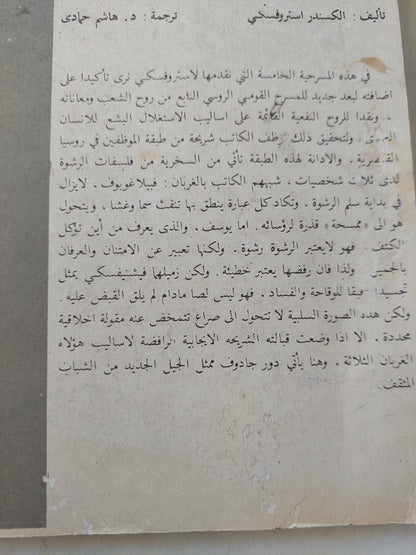 تأليف : الكسندر استروفسكي ترجمة : د. هاشم حمادى
في هذه المسرحية الخامسة التي نقدمها لاستروفسكي نرى تأكيدا على
اضافته لبعد جديد للمسرح القومي الروسي النابع من روح الشعب ومعاناته
. ونقدا للروح النفعية القائمة على اساليب الاستغلال البشع للانسان
ولتحقيق ذلك وظف الكاتب شريحة من طبقة الموظفين في روسيا
القيصرية . والادانة لهذه الطبقة تأتي من السخرية من فلسفات الرشوة
لدى ثلاث شخصيات . شبههم الكاتب بالغربان : فبيلاغوبوف . لايزال
في بداية سلم الرشوة . وتكاد كل عبارة ينطق بها تنفث سما وغشا . ويتحول
هو الى «ممسحة» قذرة لرؤسائه . اما يوسف . والذى يعرف من أين تؤكل
الكتف . فهو لايعتبر الرشوة رشوة . ولكنها تعبير عن الامتنان والعرفان
بالجميل ولذا فان رفضها يعتبر خطيئة . ولكن زميلهما فيشنيفسكي يمثل
تجسيدا عميقا للوقاحة والفساد . فهو ليس لصا مادام لم يلق القبض عليه .
ولكن هذه الصورة السلبية لا تتحول الى صراع تتمخض عنه مقولة اخلاقية
محددة . الا اذا وضعت قبالته الشريحه الايجابية الرافضة لاساليب هؤلاء
الغربان الثلاثة . وهنا يأتي دور جادوف ممثل الجيل الجديد من الشباب
المثقف.